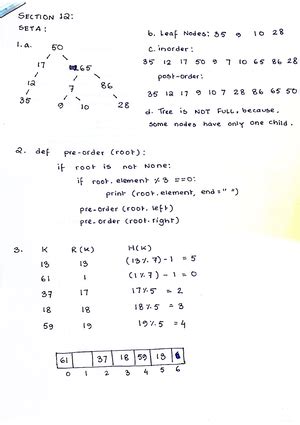 SECTION 12:
SETA:
1.a.
50
17 65
12 7 86
35 9 10 28
b. Leaf Nodes: 35 9 10 28
c. inorder:
35 12 17 50 9 7 10 65 86 28
post-order:
35 12 17 9 10 7 28 86 65 50
d. Tree is NOT FULL, because,
some nodes have only one child.
2. def pre-order (root):
if root is not None:
if root.element % 3 ==0:
print (root.element, end=" ")
pre-order (root.left)
pre-order (root.right)
3. K R(K) H(K)
13 13 (13%7)-1 = 5
61 1 (1%7)-1 = 0
37 17 17%5 = 2
18 18 18%5 = 3
59 19 19%5 = 4
61 37 18 59 13
0 1 2 3 4 5 6